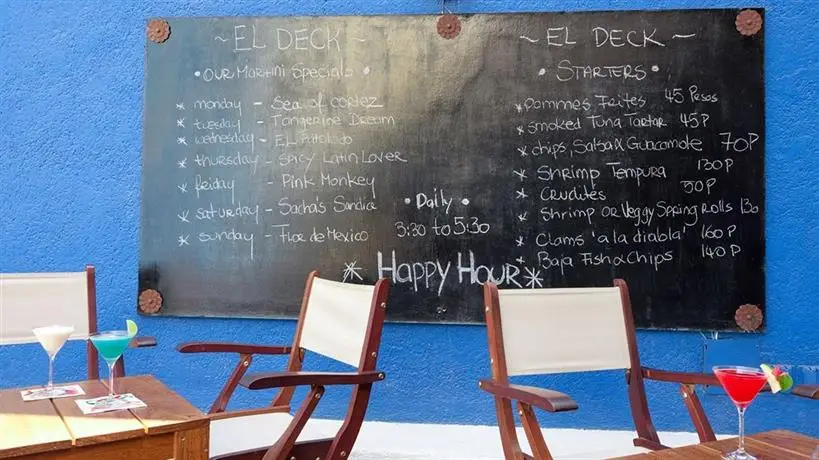 ~ EL DECK ~
• Our Martini Specials •
* monday - Sea of Cortez
* tuesday - Tangerine Dream
* wednesday - El Pintado
* thursday - Spicy Latin Lover
* friday - Pink Monkey
* saturday - Sacha's Sandia
* sunday - Flor de Mexico
• Daily •
3:30 to 5:30
* Happy Hour *
~ EL DECK ~
• STARTERS •
* Pommes Frites 45 Pesos
* Smoked Tuna Tartar 45P
* chips, Salsa & Guacamole 70P
* Shrimp Tempura 130P
* Crudites 90P
* Shrimp or Veggy Spring Rolls 130
* Clams 'a la diabla' 160P
* Baja Fish & Chips 140P